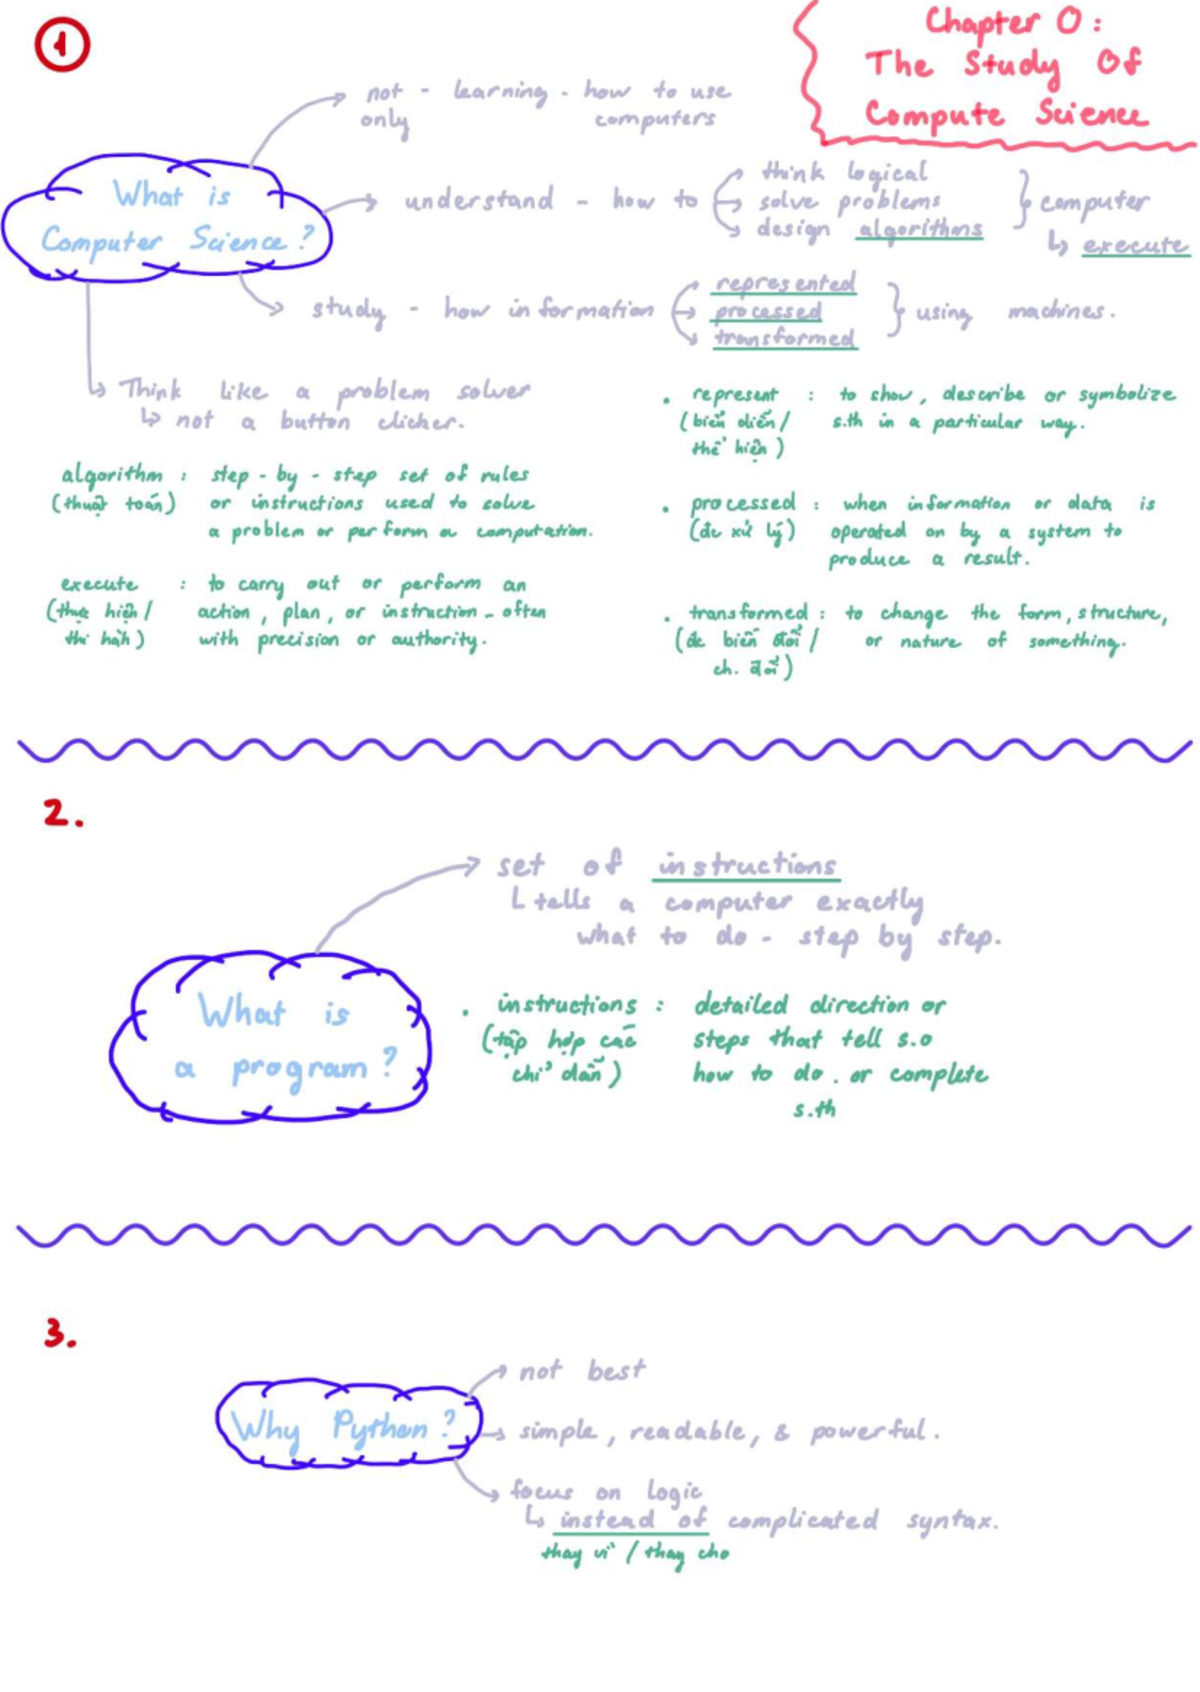 1
Chapter 0:
The Study Of
Compute Science
What is
Computer Science?
not - learning - how to use
only computers
understand - how to
think logical
solve problems
design algorithms
computer
execute
study - how information
represented
processed
transformed
using machines.
Think like a problem solver
not a button clicker.
algorithm : step - by - step set of rules
(thuật toán) or instructions used to solve
a problem or perform a computation.
execute : to carry out or perform an
(thực hiện / action, plan, or instruction - often
thi hành) with precision or authority.
• represent : to show, describe or symbolize
(biểu diễn / s.th in a particular way.
thể hiện)
• processed : when information or data is
(đc xử lý) operated on by a system to
produce a result.
• transformed : to change the form, structure,
(đc biến đổi / or nature of something.
ch. đổi)
2.
What is
a program?
set of instructions
tells a computer exactly
what to do - step by step.
• instructions : detailed direction or
(tập hợp các steps that tell s.o
chỉ dẫn) how to do . or complete
s.th
3.
Why Python?
not best
simple, readable, & powerful.
focus on logic
instead of complicated syntax.
thay vì / thay cho